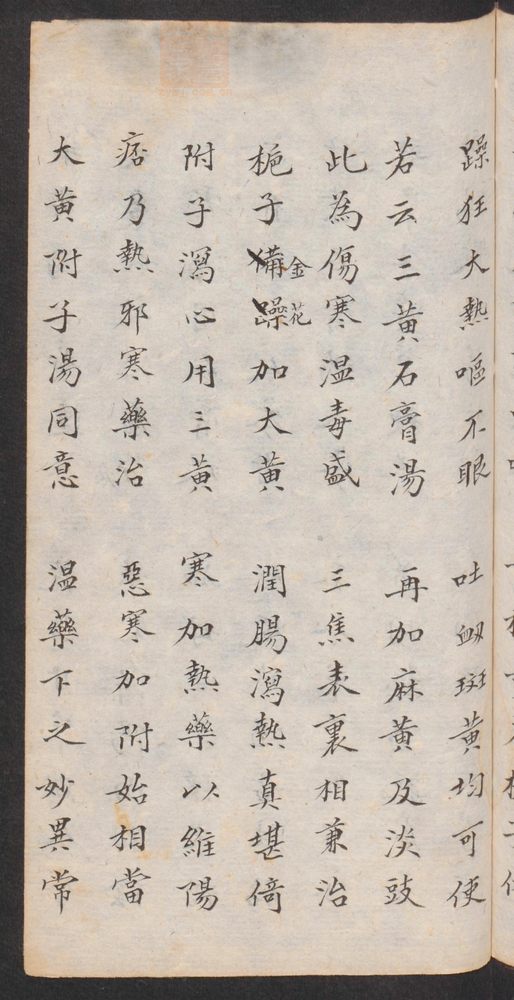 躁狂大熱嘔不眠 吐衂斑黃均可使
若云三黃石膏湯 再加麻黃及淡豉
此為傷寒温毒盛 三焦表裏相兼治
梔子金花加大黃 潤腸瀉熱真堪倚
附子瀉心用三黃 寒加熱藥以維陽
痞乃熱邪寒藥治 惡寒加附始相當
大黃附子湯同意 温藥下之妙異常